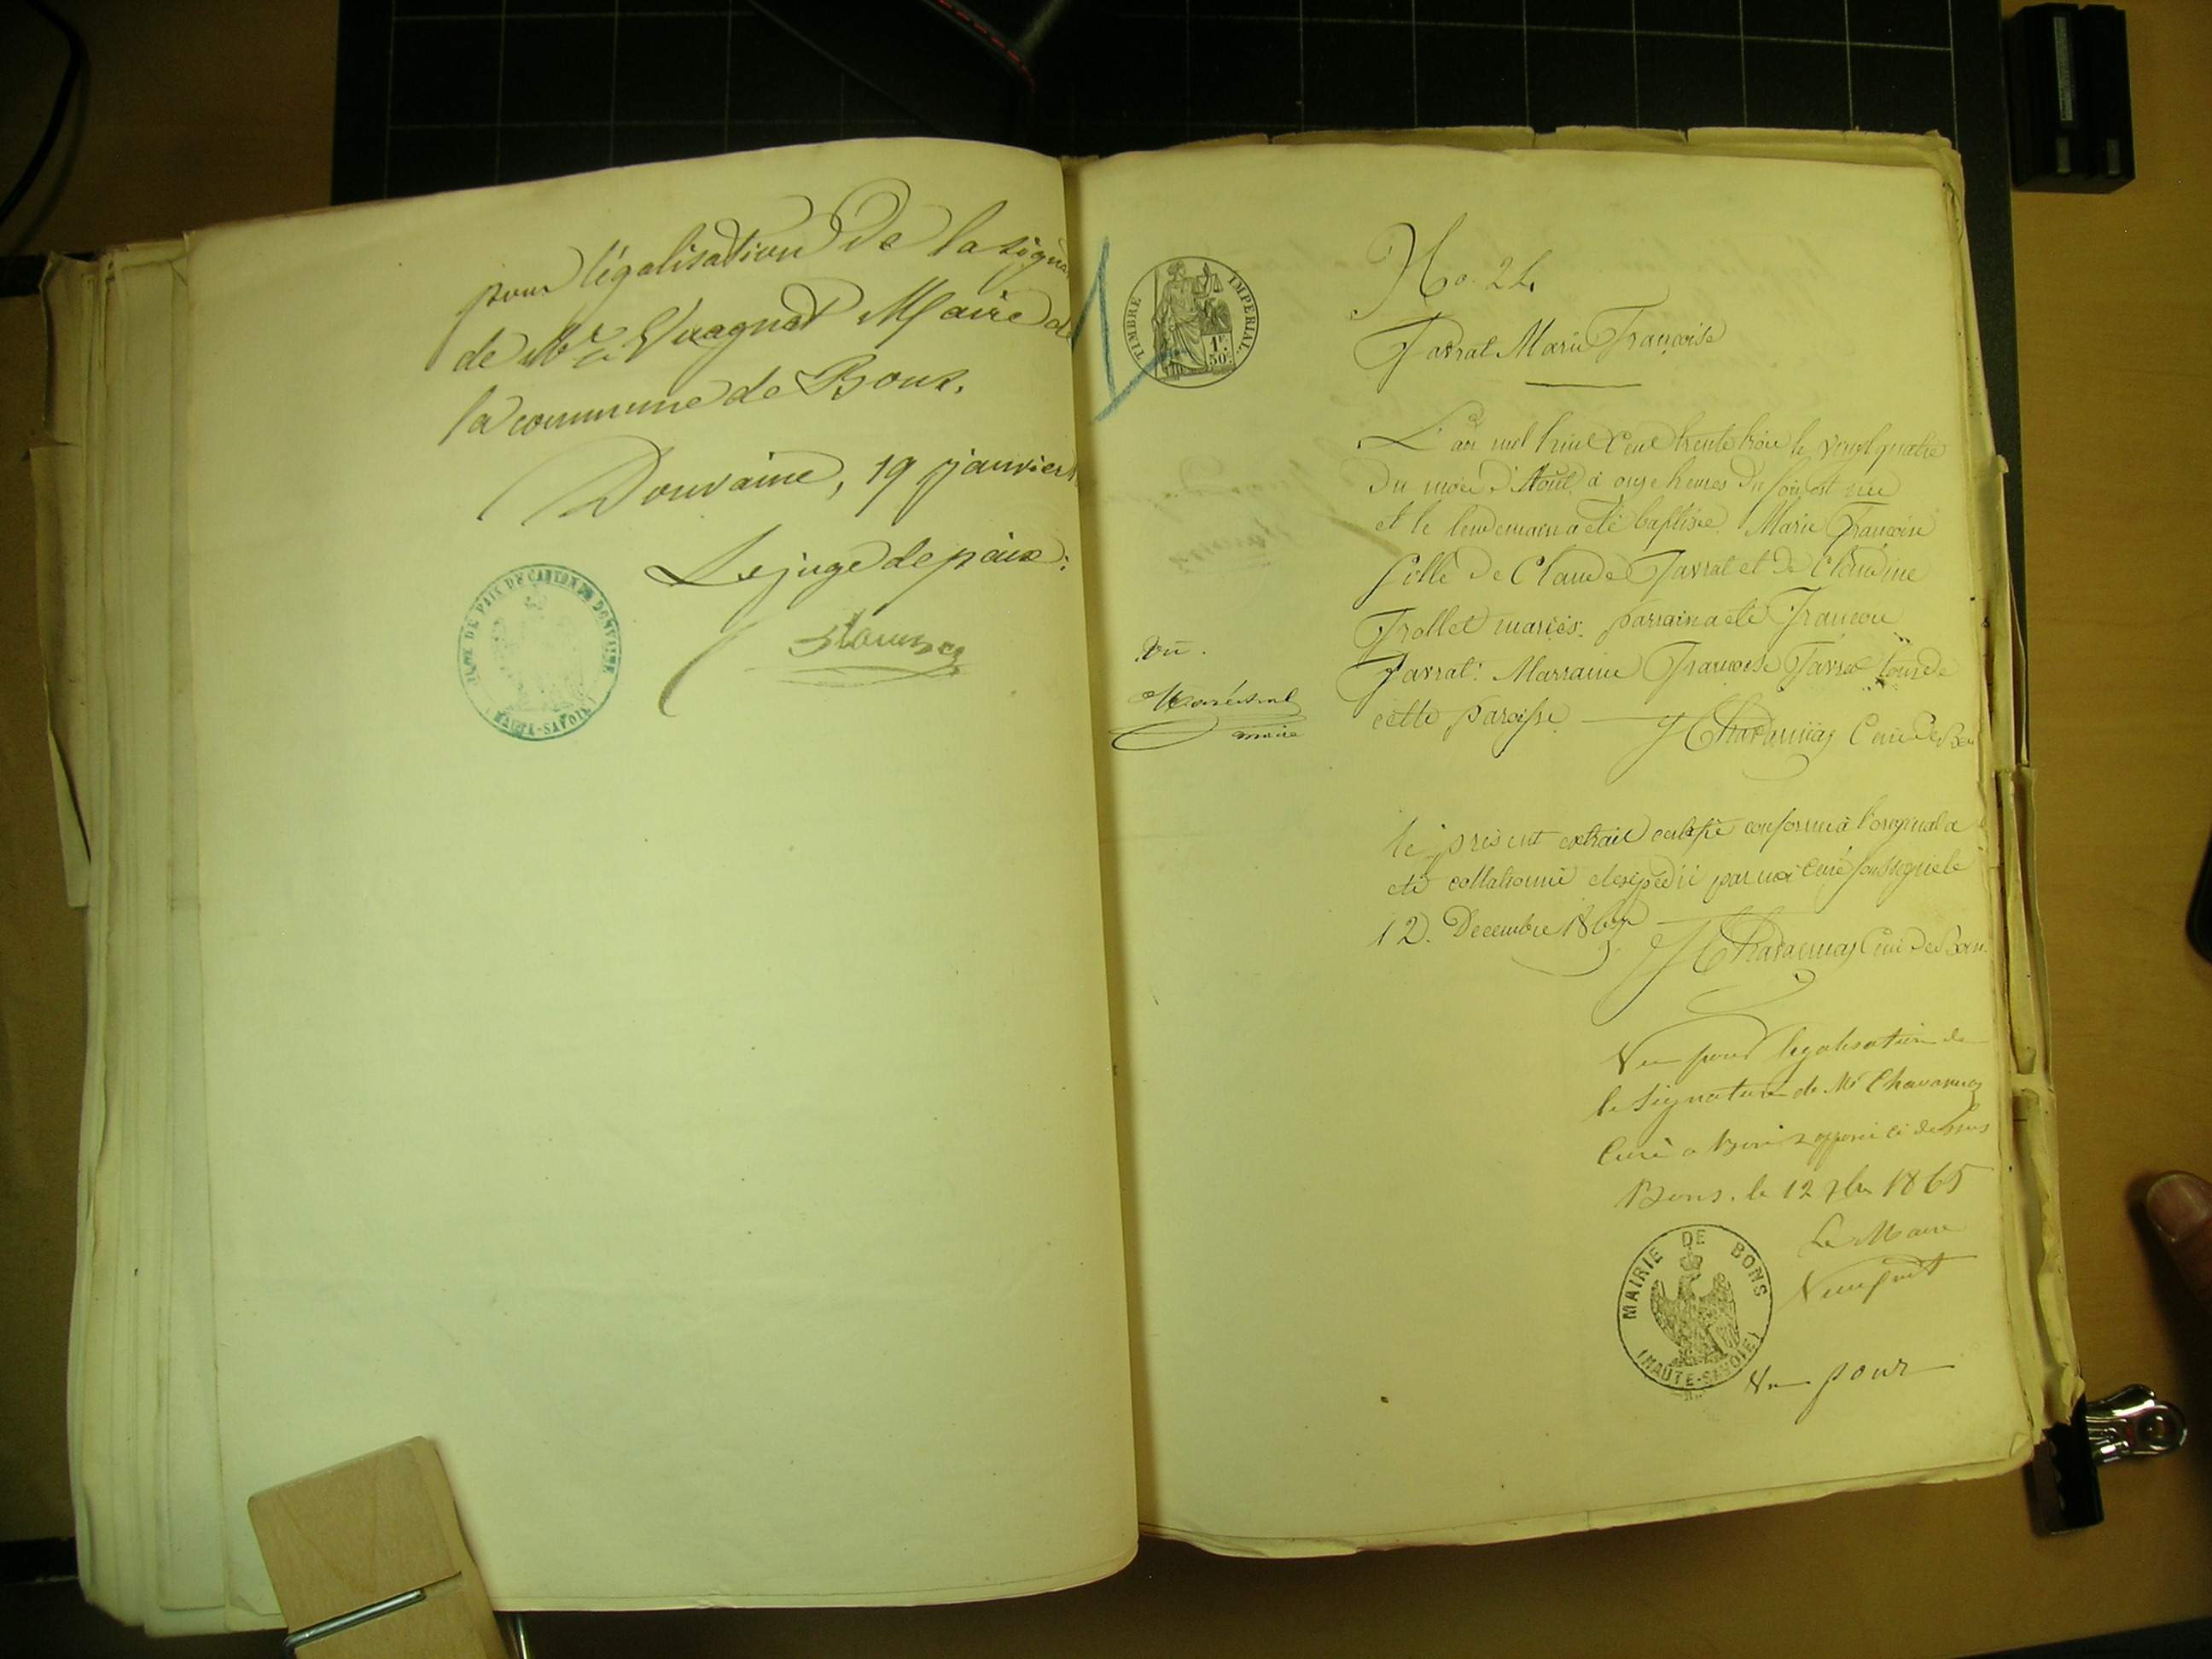 pour légalisation de la signa
de Mr Vuagnat Maire de
la commune de Bons.
Douvaine, 19 janvier
Le juge de paix:
JUGE DE PAIX DU CANTON DE DOUVAINE
(HAUTE-SAVOIE)
TIMBRE IMPERIAL.
1F.
50C.
No. 24
Favrat Marie Françoise
L'an mil huit Cent trente trois le vingt quatre
Du mois d'Aout, à onze heures Du soir, est née
et le lendemain a été baptisée Marie Françoise
fille De Claude Favrat et De Claudine
Frollet mariés: parrain a été François
Favrat: Marraine Françoise Favrat tous de
cette paroisse Chavannay Curé De Bons
Vu.
Maréchal
maire
le présent extrait certifié conforme à l'original a
été collationné et expédié par moi Curé soussigné le
12. Decembre 1865
Chavannay Curé De Bons
Vu pour légalisation de
la signature de Mr Chavannay
Curé a Bons apposée ci dessus
Bons, le 12 1865
Le Maire
Vuagnat
MAIRIE DE BONS
(HAUTE-SAVOIE)
Vu pour